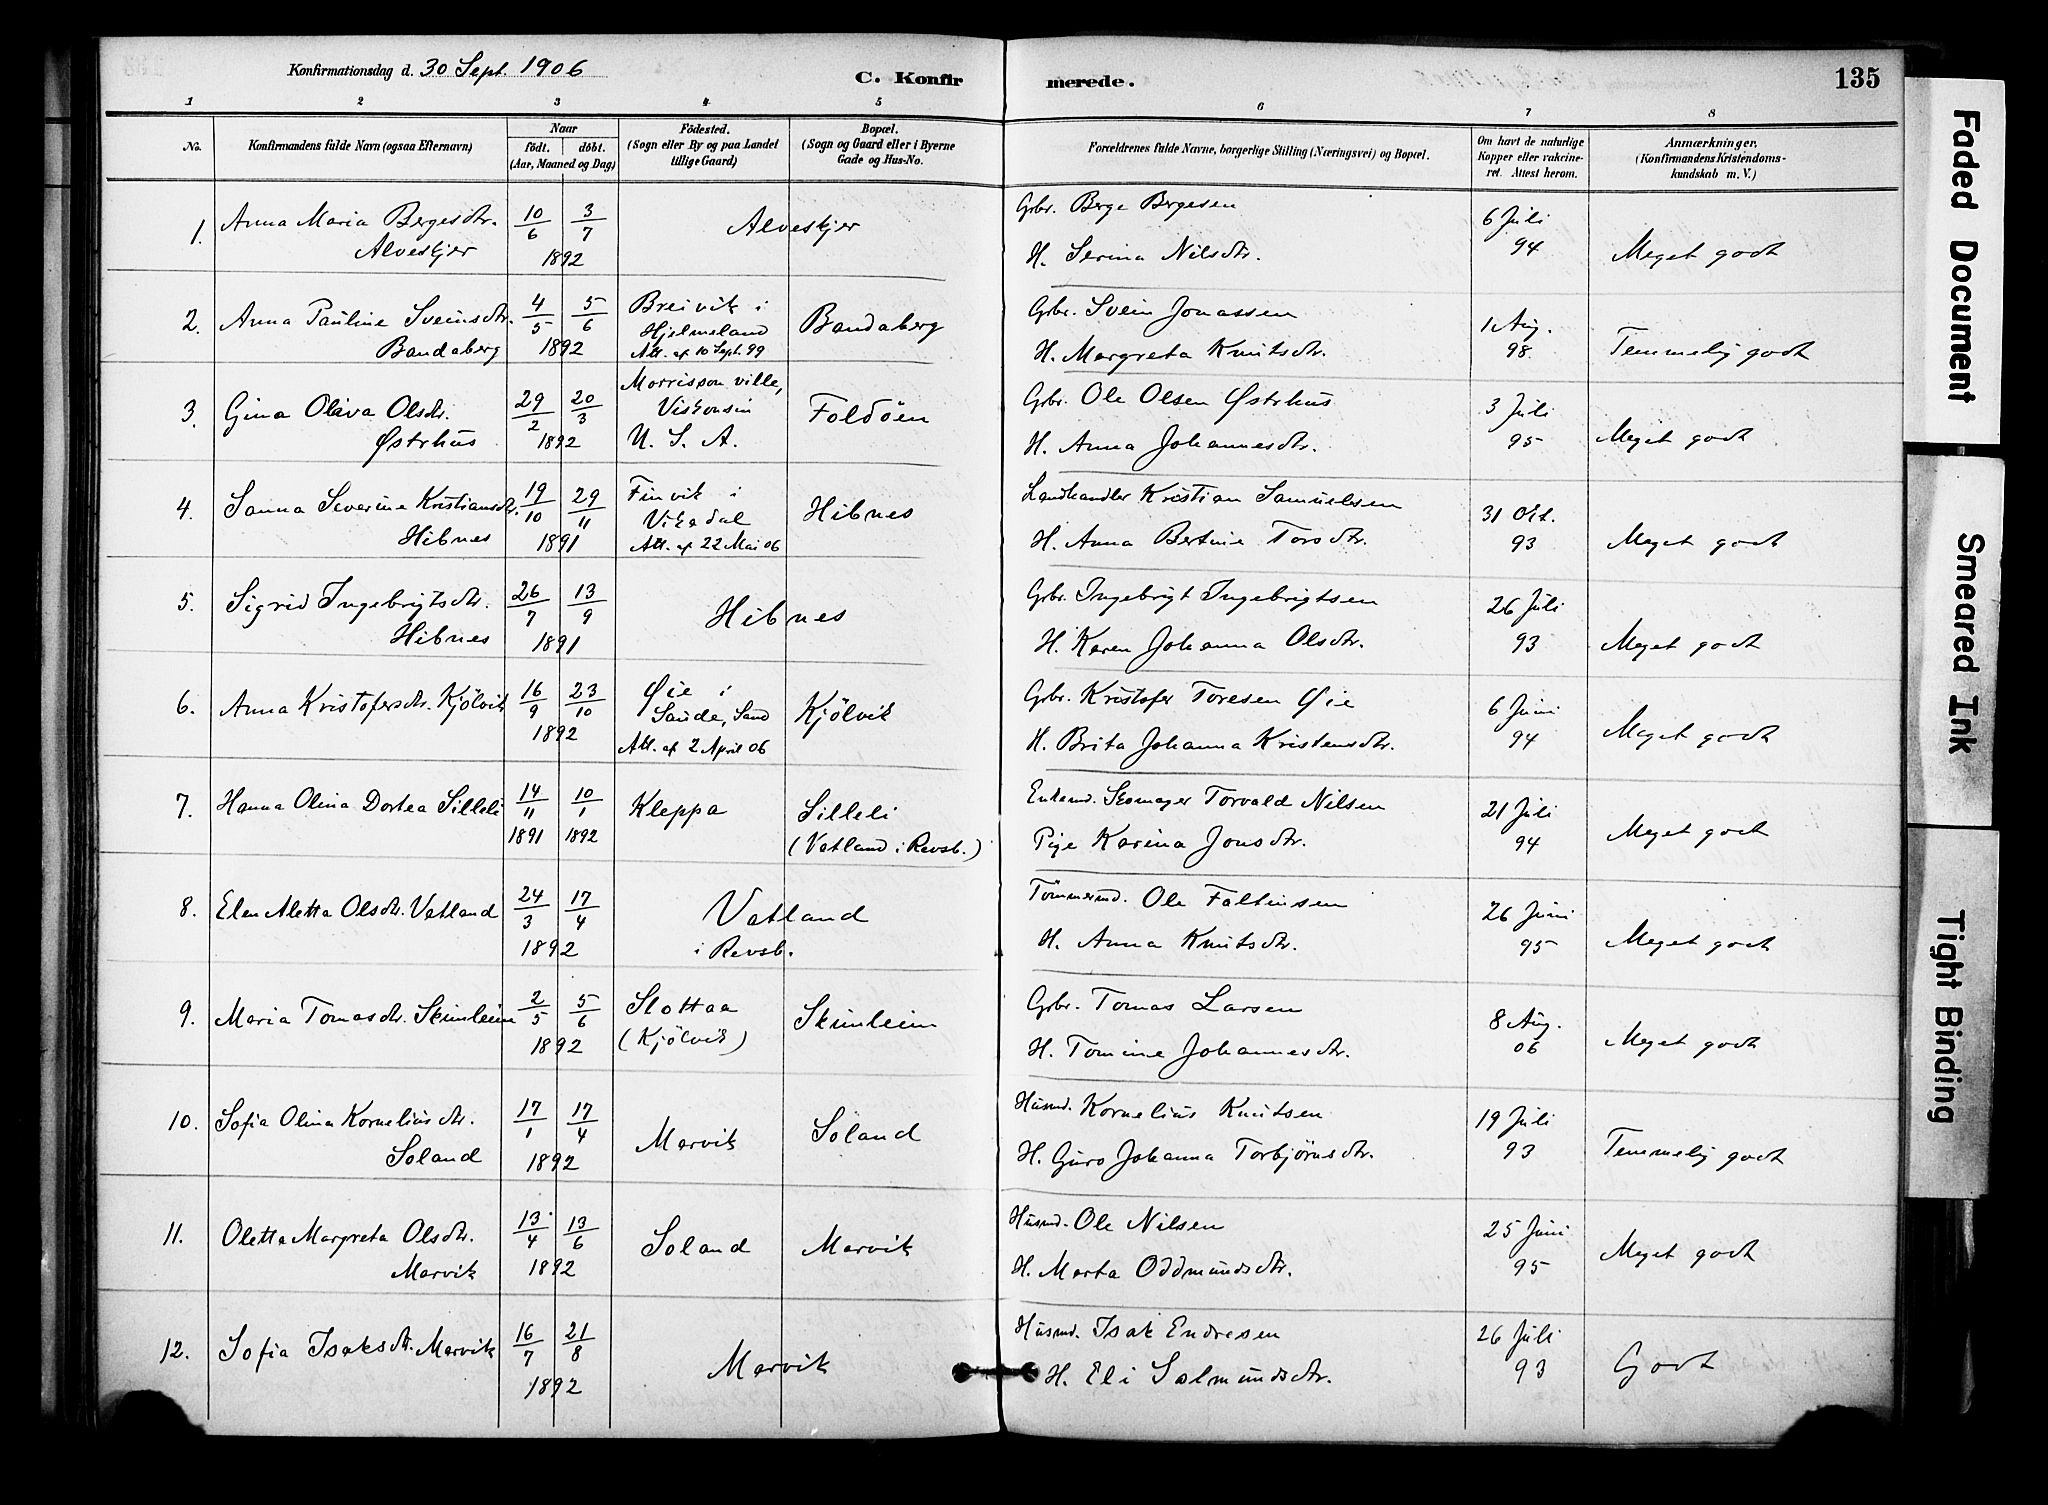 Konfirmationsdag d. 30 Sept. 1906
C. Konfirmerede.
135
1 2 3 4 5 6 7 8
No.
Konfirmandens fulde Navn (ogsaa Efternavn)
Naar
födt. döbt.
(Aar, Maaned og Dag)
Födested.
(Sogn eller By og paa Landet
tillige Gaard)
Bopæl.
(Sogn og Gaard eller i Byerne
Gade og Hus-No.
Forældrenes fulde Navne, borgerlige Stilling (Næringsvei) og Bopæl.
Om havt de naturlige
Kopper eller vakcine-
ret. Attest herom.
Anmærkninger,
(Konfirmandens Kristendoms-
kundskab m. V.)
1. Anna Maria Bergesdtr.
Alveskjer
10/6 3/7
1892
Alveskjer
Grbr. Berge Bergesen
H. Serina Nilsdtr.
6 Juli
94
Meget godt
2. Anna Pauline Sveinsdtr.
Bandaberg
4/5 5/6
1892
Breivik i
Hjelmeland
Att. af 10 Sept. 99
Bandaberg
Grbr. Svein Jonassen
H. Margreta Knutsdtr.
1 Aug.
98.
Temmelig godt
3. Gina Oliva Olsdtr.
Østrhus
29/2 20/3
1892
Morrisonville,
Viskonsin
U. S. A.
Foldöen
Grbr. Ole Olsen Østrhus
H. Anna Johannesdtr.
3 Juli
95
Meget godt
4. Sanna Severine Kristiansdtr.
Hibnes
19/10 29/11
1891
Finvik i
Vikedal
Att. af 22 Mai 06
Hibnes
Landhandler Kristian Samuelsen
H. Anna Bertine Torsdtr.
31 Okt.
93
Meget godt
5. Sigrid Ingebrigtsdtr.
Hibnes
26/7 13/9
1891
Hibnes
Grbr. Ingebrigt Ingebrigtsen
H. Karen Johanna Olsdtr.
26 Juli
93
Meget godt
6. Anna Kristofersdtr. Kjölvik
16/9 23/10
1892
Øie i
Saude, Sand
Att. af 2 April 06
Kjölvik
Grbr. Kristofer Toresen Øie
H. Brita Johanna Kristensdtr.
6 Juni
94
Meget godt
7. Hanna Olina Dortea Silleli
14/11 10/1
1891 1892
Kleppa
Silleli
(Vatland i Revsb.)
Enkemd. Skomager Torvald Nilsen
Pige Karina Jonsdtr.
21 Juli
94
Meget godt
8. Elen Aletta Olsdtr. Vatland
24/3 17/4
1892
Vatland
i Revsb.
Tömmermd. Ole Faltinsen
H. Anna Knutsdtr.
26 Juni
95
Meget godt
9. Maria Tomasdtr. Skimleim
2/5 5/6
1892
Slottaa
(Kjölvik)
Skimleim
Grbr. Tomas Larsen
H. Tomine Johannesdtr.
8 Aug.
06
Meget godt
10. Sofia Olina Korneliusdtr.
Soland
17/1 17/4
1892
Marvik
Soland
Husmd. Kornelius Knutsen
H. Guro Johanna Torbjörnsdtr.
19 Juli
93
Temmelig godt
11. Oletta Margreta Olsdtr.
Marvik
13/4 13/6
1892
Soland
Marvik
Husmd. Ole Nilsen
H. Marta Oddmundsdtr.
25 Juni
95
Meget godt
12. Sofia Isaksdtr. Marvik
16/7 21/8
1892
Marvik
Husmd. Isak Endresen
H. Eli Salmundsdtr.
26 Juli
93
Godt
Faded Document
Smeared Ink
Tight Binding